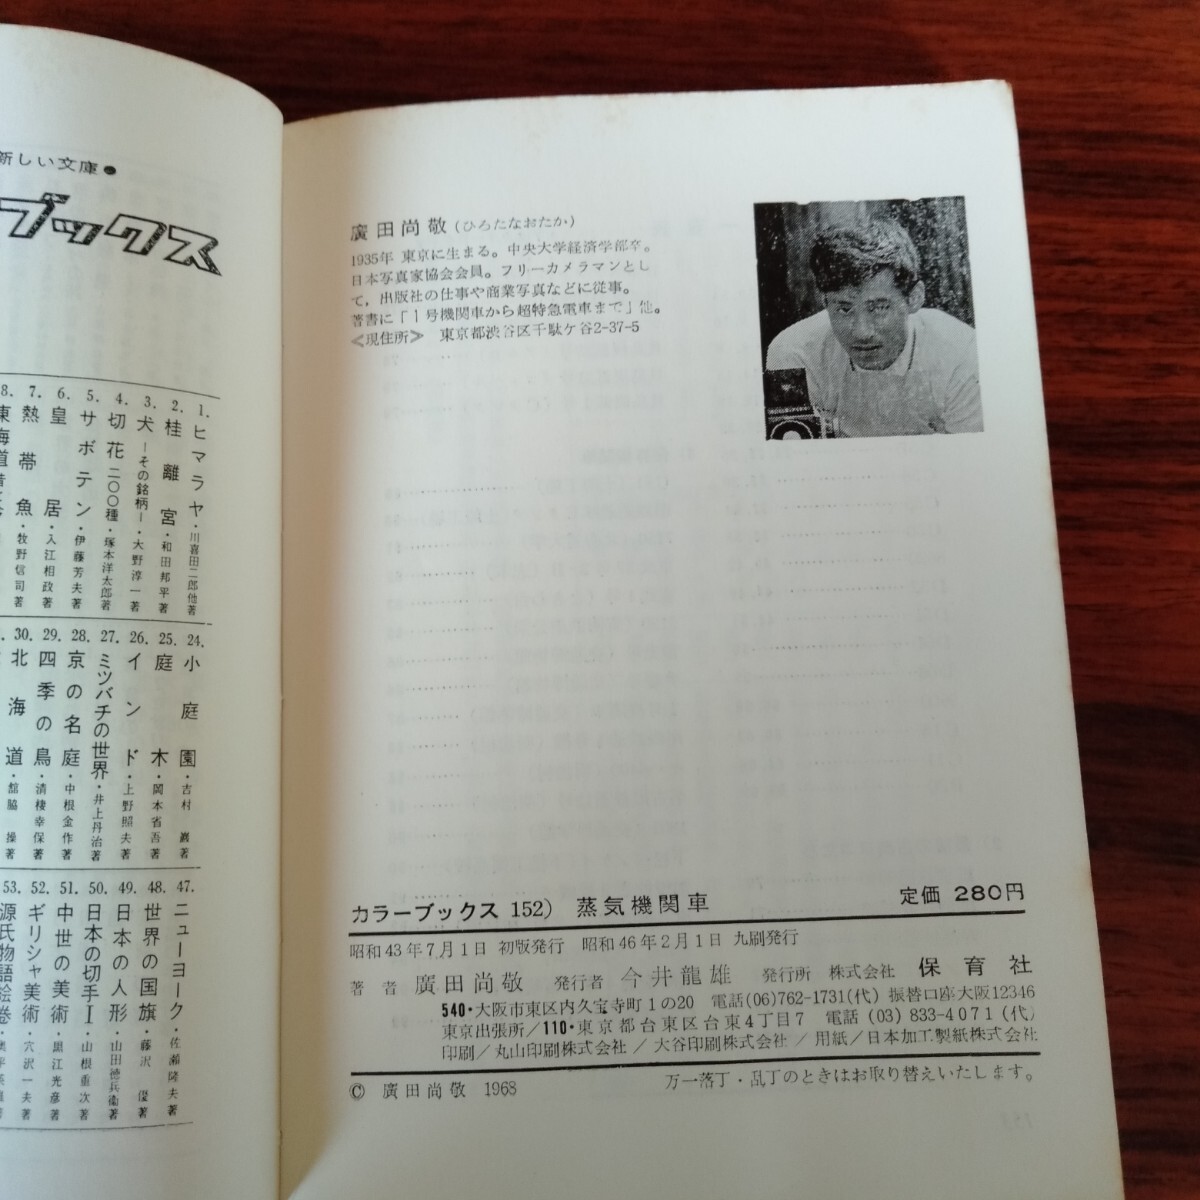 新しい文庫●
ブックス
1. ヒマラヤ・川喜田二郎他著
2. 桂離宮・和田邦平著
3. 犬―その銘柄―・大野淳一著
4. 切花二〇〇種・塚本洋太郎著
5. サボテン・伊藤芳夫著
6. 皇居・入江相政著
7. 熱帯魚・牧野信司著
8. 東海道昔と
24. 小庭園・吉村巌著
25. 庭木・岡本省吾著
26. インド・上野照夫著
27. ミツバチの世界・井上丹治著
28. 京の名庭・中根金作著
29. 四季の鳥・清棲幸保著
30. 北海道・舘脇操著
47. ニューヨーク・佐瀬隆夫著
48. 世界の国旗・藤沢優著
49. 日本の人形・山田徳兵衛著
50. 日本の切手Ⅰ・山根重次著
51. 中世の美術・黒江光彦著
52. ギリシャ美術・穴沢一夫著
53. 源氏物語絵巻
廣田尚敬(ひろたなおたか)
1935年 東京に生まる。中央大学経済学部卒。
日本写真家協会会員。フリーカメラマンとし
て，出版社の仕事や商業写真などに従事。
著書に「1号機関車から超特急電車まで」他。
≪現住所≫ 東京都渋谷区千駄ケ谷2-37-5
カラーブックス 152) 蒸気機関車 定価 280円
昭和43年7月1日 初版発行 昭和46年2月1日 九刷発行
著者 廣田尚敬 発行者 今井龍雄 発行所 株式会社 保育社
540・大阪市東区内久宝寺町1の20 電話(06)762-1731(代) 振替口座大阪12346
東京出張所/110・東京都台東区台東4丁目7 電話(03)833-4071(代)
印刷/丸山印刷株式会社/大谷印刷株式会社/用紙/日本加工製紙株式会社
© 廣田尚敬 1968 万一落丁・乱丁のときはお取り替えいたします。